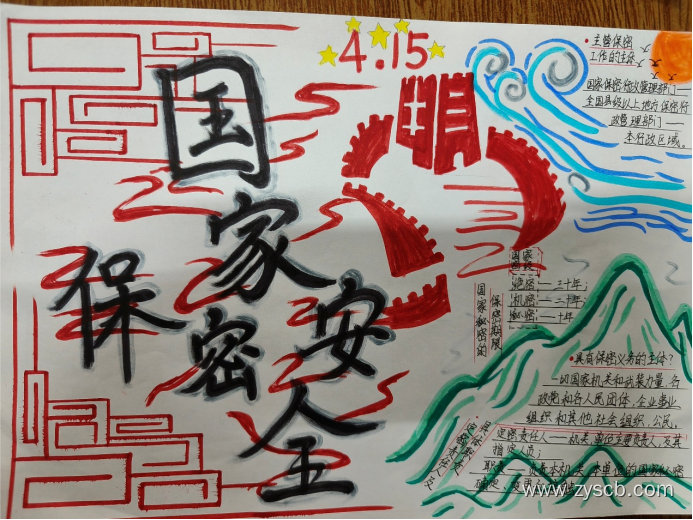 4.15
国家安全
保密
主管保密
工作的主体
国家保密行政管理部门——
全国县级以上地方保密行
政管理部门——
本行政区域。
国家秘密的
保密期限
国家
绝密：——三十年；
机密：——二十年；
秘密：——十年
具有保密义务的主体？
一切国家机关和武装力量、各
政党和各人民团体、企业事业
组织和其他社会组织、公民。
定密责任人——机关、单位主要负责人及其
指定人员；
职责——负责本机关、本单位的国家秘密
确定、变更
www.zyscb.com